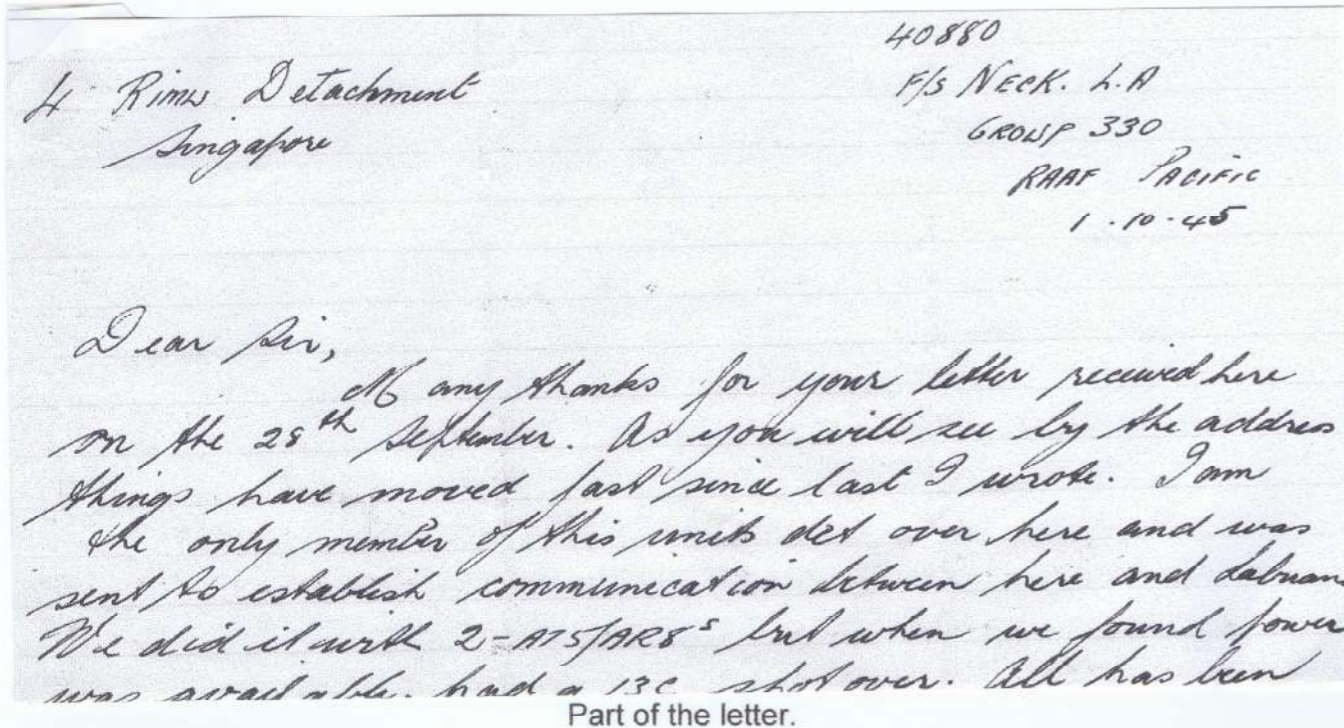 40880
4 Rimu Detachment
F/S NECK. L.A
Singapore
GROUP 330
RAAF PACIFIC
1-10-45
Dear Sir,
Many thanks for your letter received here
on the 28th September. As you will see by the address
things have moved fast since last I wrote. I am
the only member of this units det over here and was
sent to establish communication between here and Labuan
We did it with 2-AT5/AR8s but when we found power
was available. had a 13C shot over. All has been
Part of the letter.